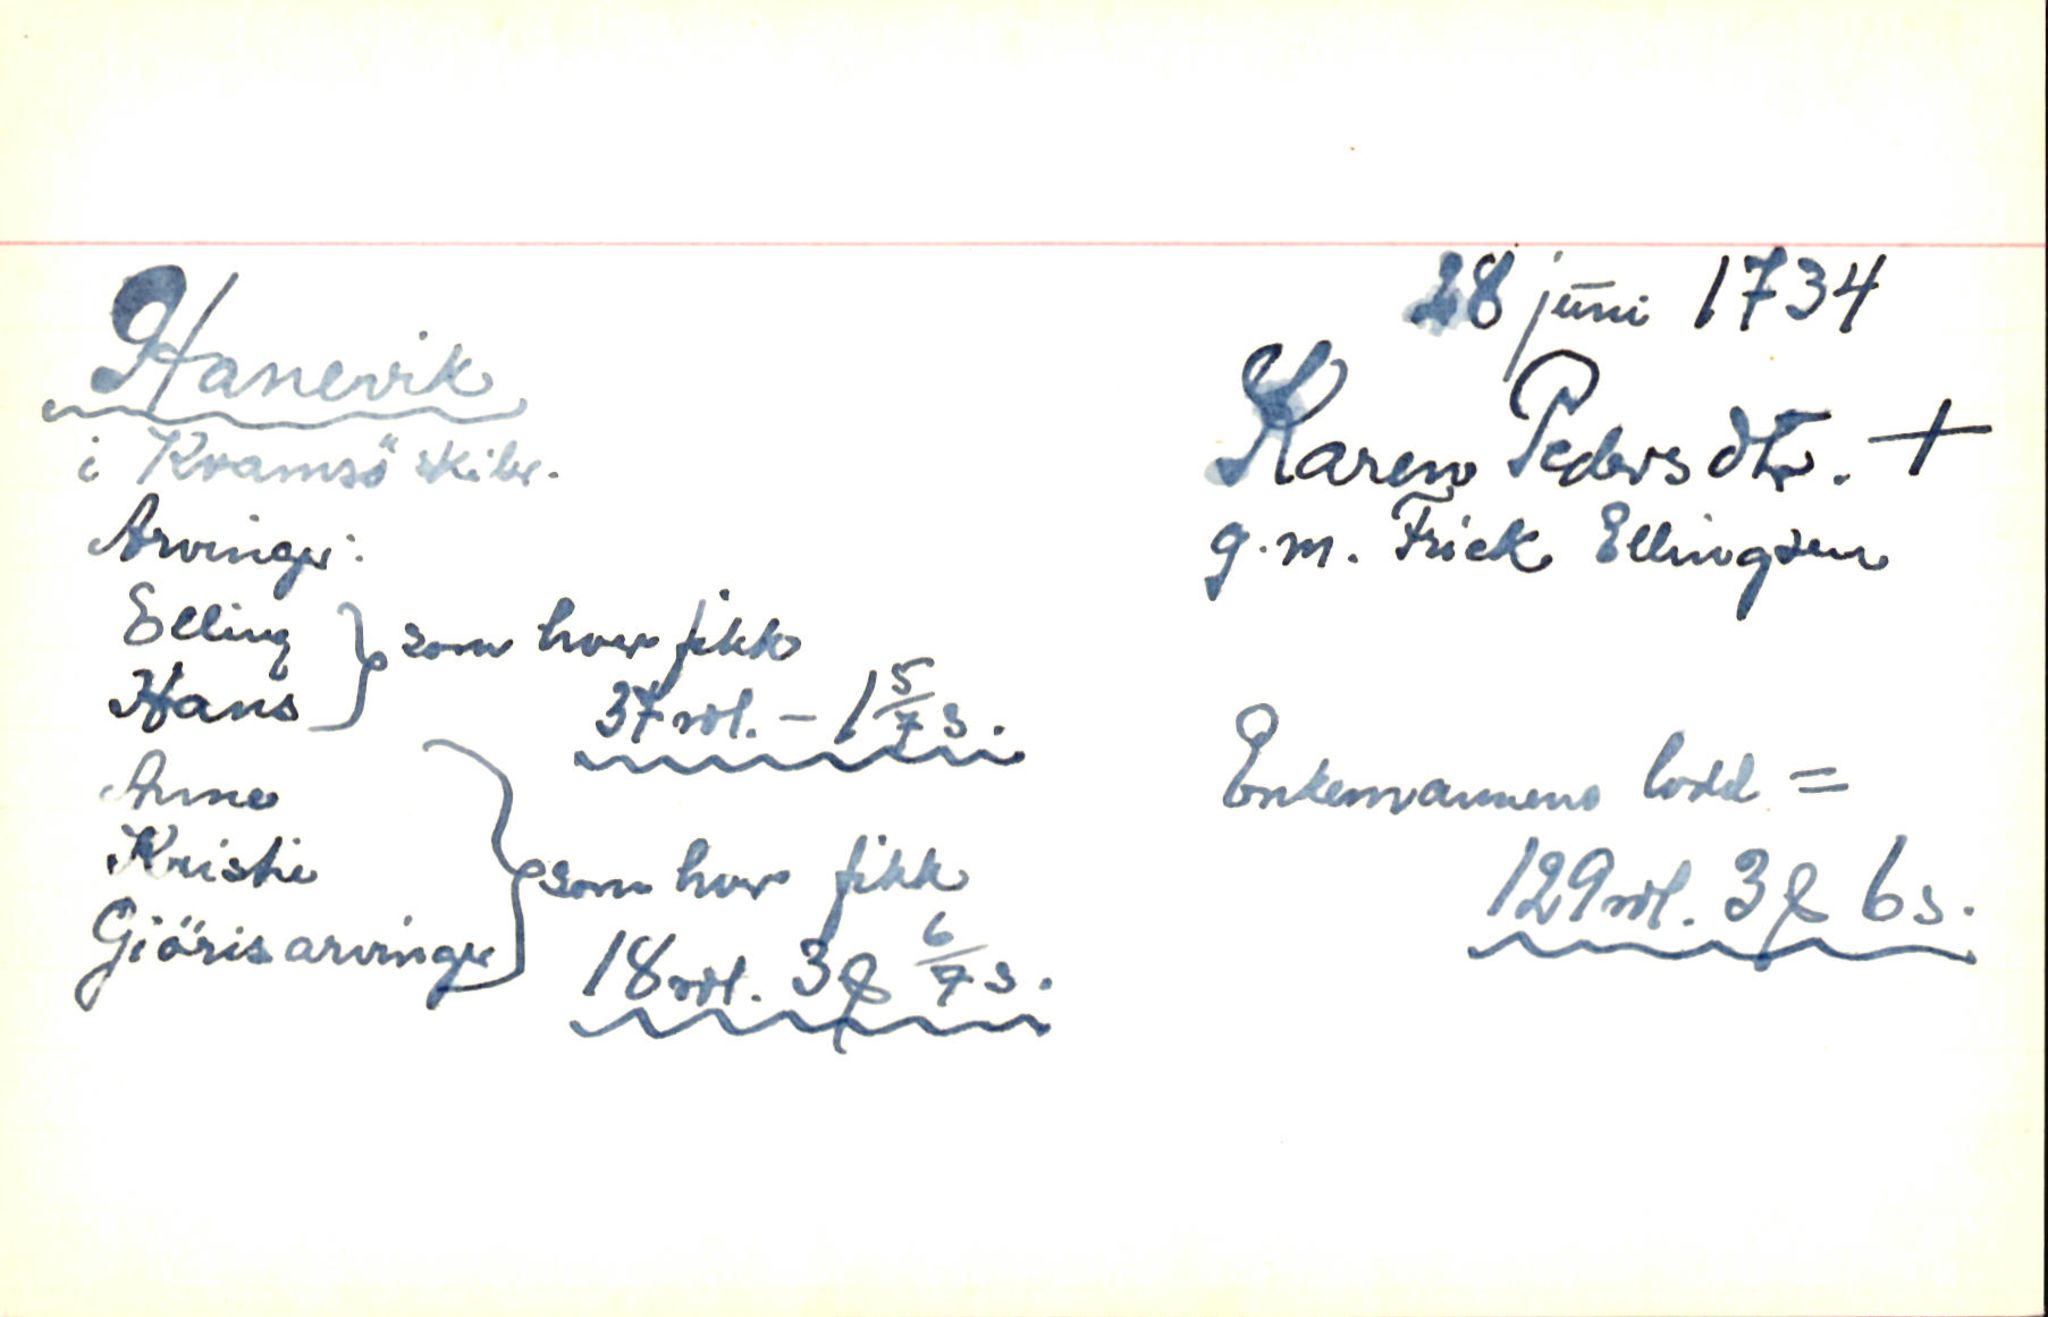 28 juni 1734
Hanevik
i Kvamsö skibr.
Karen Pedersdtr. +
g.m. Frick Ellingsen
Arvinger:
Elling
Hans
som hver fikk
37 rdl. - 1 5/7 s.
Anne
Kristie
Gjöris arvinger
som hver fikk
18 rdl. 3 ƒ 6/7 s.
Enkemannens lodd =
129 rdl. 3 ƒ 6 s.